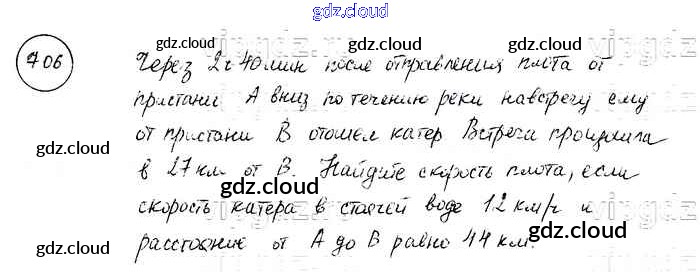 gdz.cloud
706 Через 2 ч 40 мин после отправления плота от
пристани А вниз по течению реки навстречу ему
от пристани В отошел катер Встреча произошла
в 27 км от В. Найдите скорость плота, если
скорость катера в стоячей воде 12 км/ч и
расстояние от А до В равно 44 км.
gdz.cloud gdz.cloud gdz.cloud
gdz.cloud gdz.cloud
gdz.cloud
gdz.cloud gdz.cloud gdz.cloud
gdz.cloud